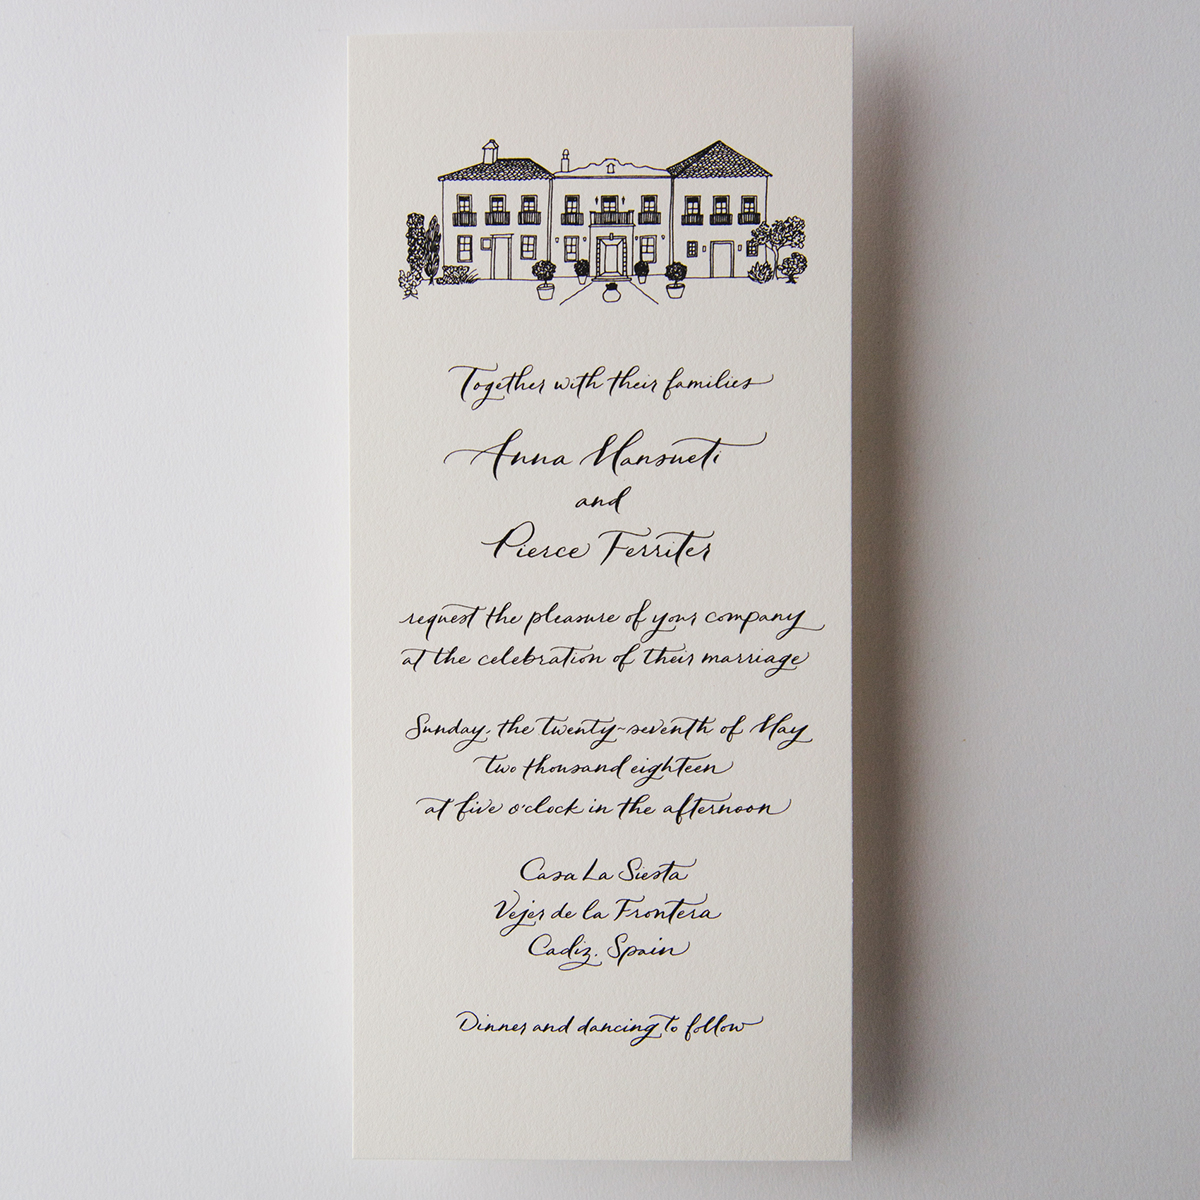 Together with their families
Anna Mansueti
and
Pierce Ferriter
request the pleasure of your company
at the celebration of their marriage
Sunday, the twenty-seventh of May
two thousand eighteen
at five o'clock in the afternoon
Casa La Siesta
Vejer de la Frontera
Cadiz, Spain
Dinner and dancing to follow